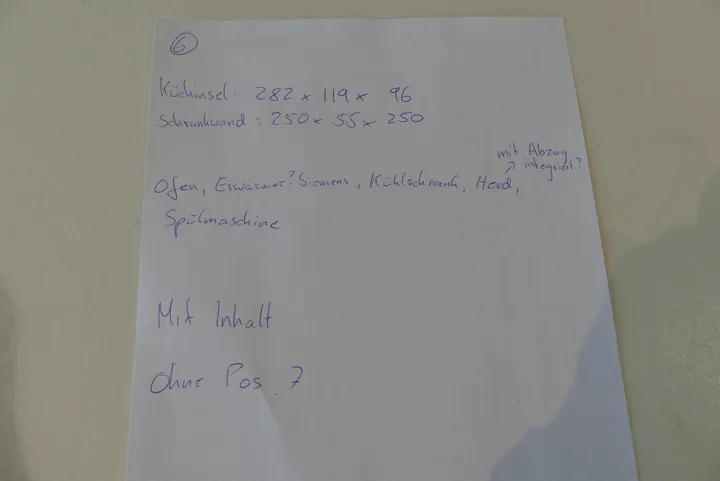 6
Küchinsel: 282 x 119 x 96
Schrankwand: 250 x 55 x 250
mit Abzug
integriert?
Ofen, Erwärmer? Siemens, Kühlschrank, Herd,
Spülmaschine
Mit Inhalt
Ohne Pos. 7